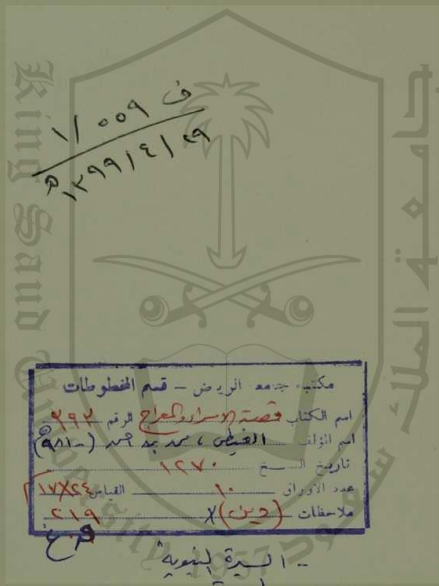 ف ٥٥٩ / ١
١٣٩٩ / ٤ / ٢٩ هـ
King Saud University
جامعة الملك سعود
مكتبة جامعة الرياض - قسم المخطوطات
اسم الكتاب قصة الاسراء والمعراج الرقم ٣٩٢
اسم المؤلف الغيطي ، محمد بن احمد (-٩٨١هـ)
تاريخ النسخ ١٢٧٠
عدد الاوراق ١٠ القياس ١٧X٢٤
ملاحظات (دين) X ٢١٩
- السيرة النبوية
1957